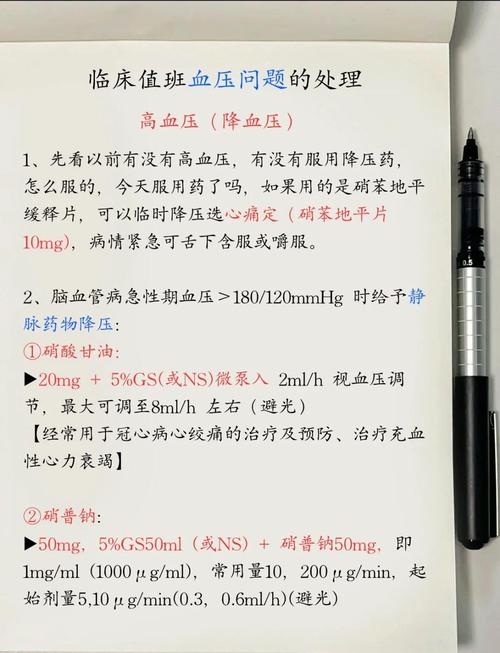 临床值班血压问题的处理
高血压（降血压）
1、先看以前有没有高血压，有没有服用降压药，
怎么服的，今天服用药了吗，如果用的是硝苯地平
缓释片，可以临时降压选心痛定（硝苯地平片
10mg)，病情紧急可舌下含服或嚼服。
2、脑血管病急性期血压＞180/120mmHg 时给予静
脉药物降压:
①硝酸甘油:
▶20mg + 5%GS(或NS)微泵入 2ml/h 视血压调
节，最大可调至8ml/h 左右（避光）
【经常用于冠心病心绞痛的治疗及预防、治疗充血
性心力衰竭】
②硝普钠:
▶50mg，5%GS50ml（或NS）+ 硝普钠50mg，即
1mg/ml (1000μg/ml)，常用量10，200μg/min，起
始剂量5,10μg/min(0.3，0.6ml/h)(避光）
0.5